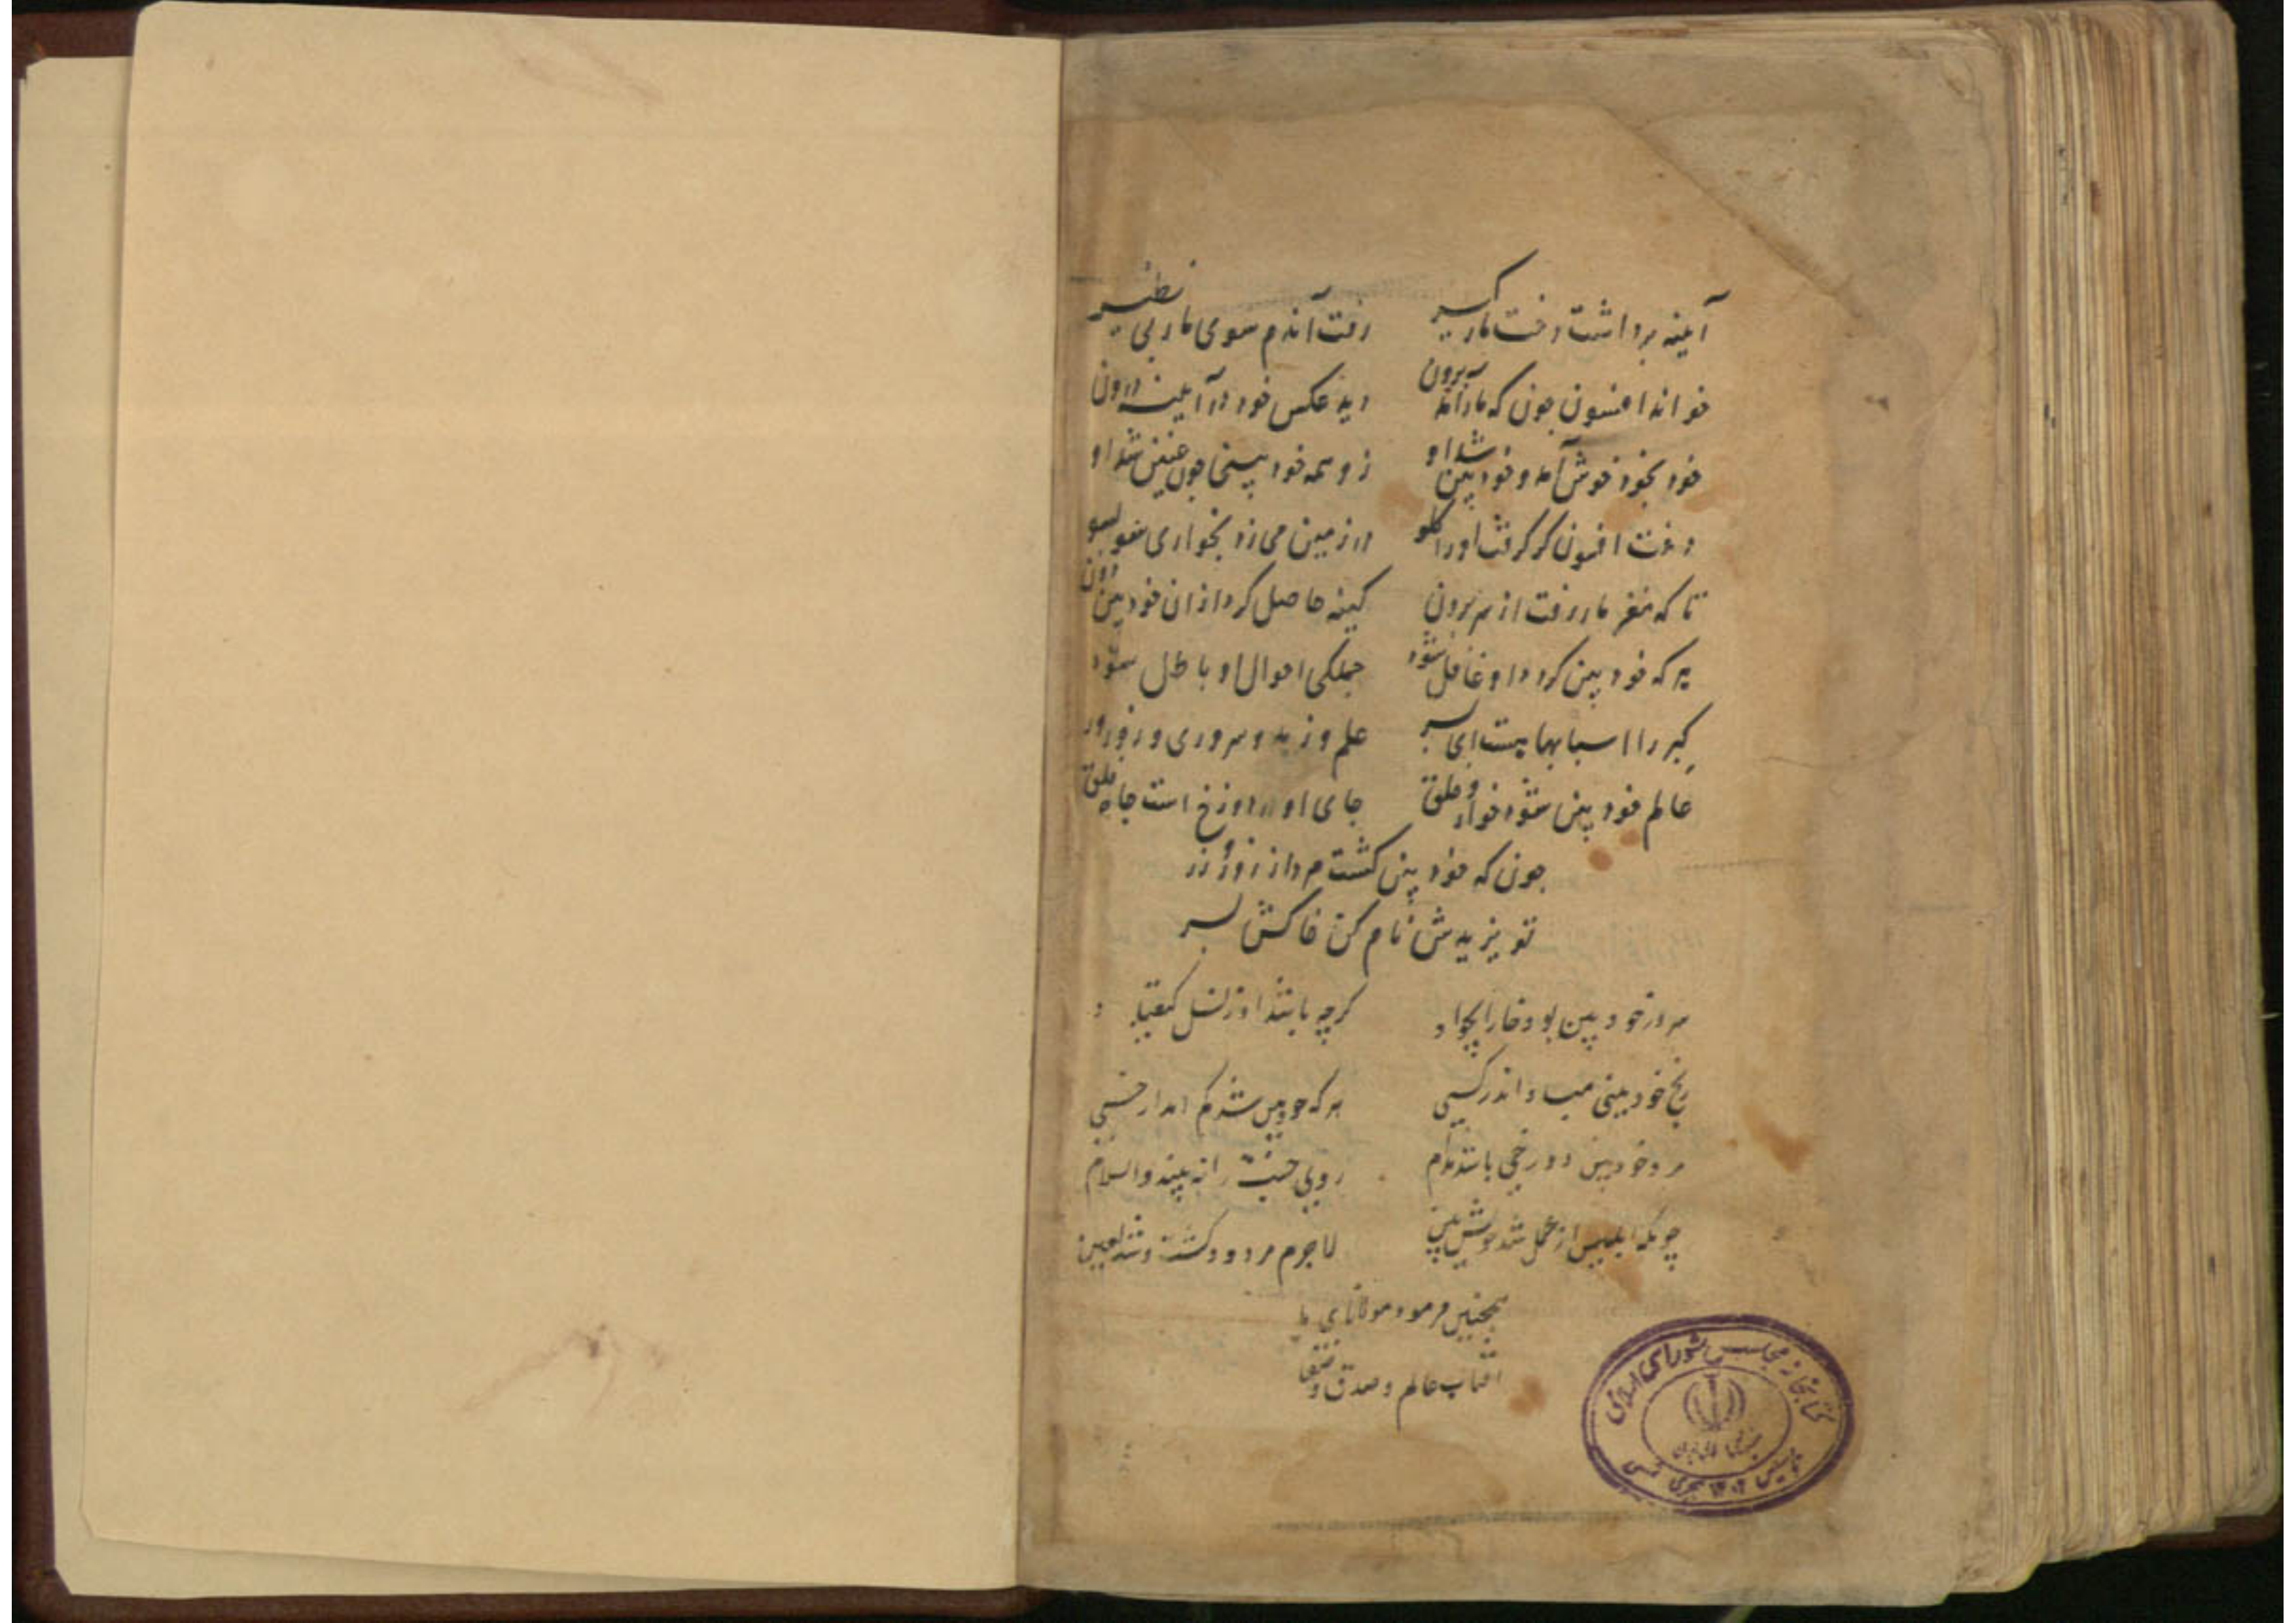 آینه برداشت رفت مارکیر رفت آندم سوی مار بی نظیر
خواند افسون چون که مار آمد برون دید عکس خود در آیینه درون
خود بخود خوش آمد و خودبین شد او ز وسمه خود بینی چون عنین شد او
رفت افسون کر کرفت او را کلو در زمین می زد بخواری سو بسو
تا که مغز مار رفت از سر برون کینه حاصل کرد از ان خودبین دون
هر که خود بین کردد او غافل شود جملکی احوال او باطل شود
کبر را اسبابهاست ای پسر علم و زهد و سروری و زور و زر
عالم خود بین شود خوار و خلق جای او در دوزخ است جاه خلق
چون که خود بین کشت مرد از زور و زر
تو یزیدش نام کن خاکش بسر
مرد خود بین بود خار ایجواد کرچه باشد او ز نسل کیقباد
رنج خود بینی مباد اندر کسی هر که خودبین شد کم امد از خسی
مرد خودبین دوزخی باشد مدام روی جنت را نه بیند والسلام
چونکه ابلیس از عمل شد خویش بین لاجرم مردود کشت و شد لعین
همچنین فرمود مولانای ما
افتاب عالم و صدق و صفا
کتابخانه مجلس شورای اسلامی
جمهوری اسلامی ایران
تاسیس ۱۳۰۲ هجری شمسی